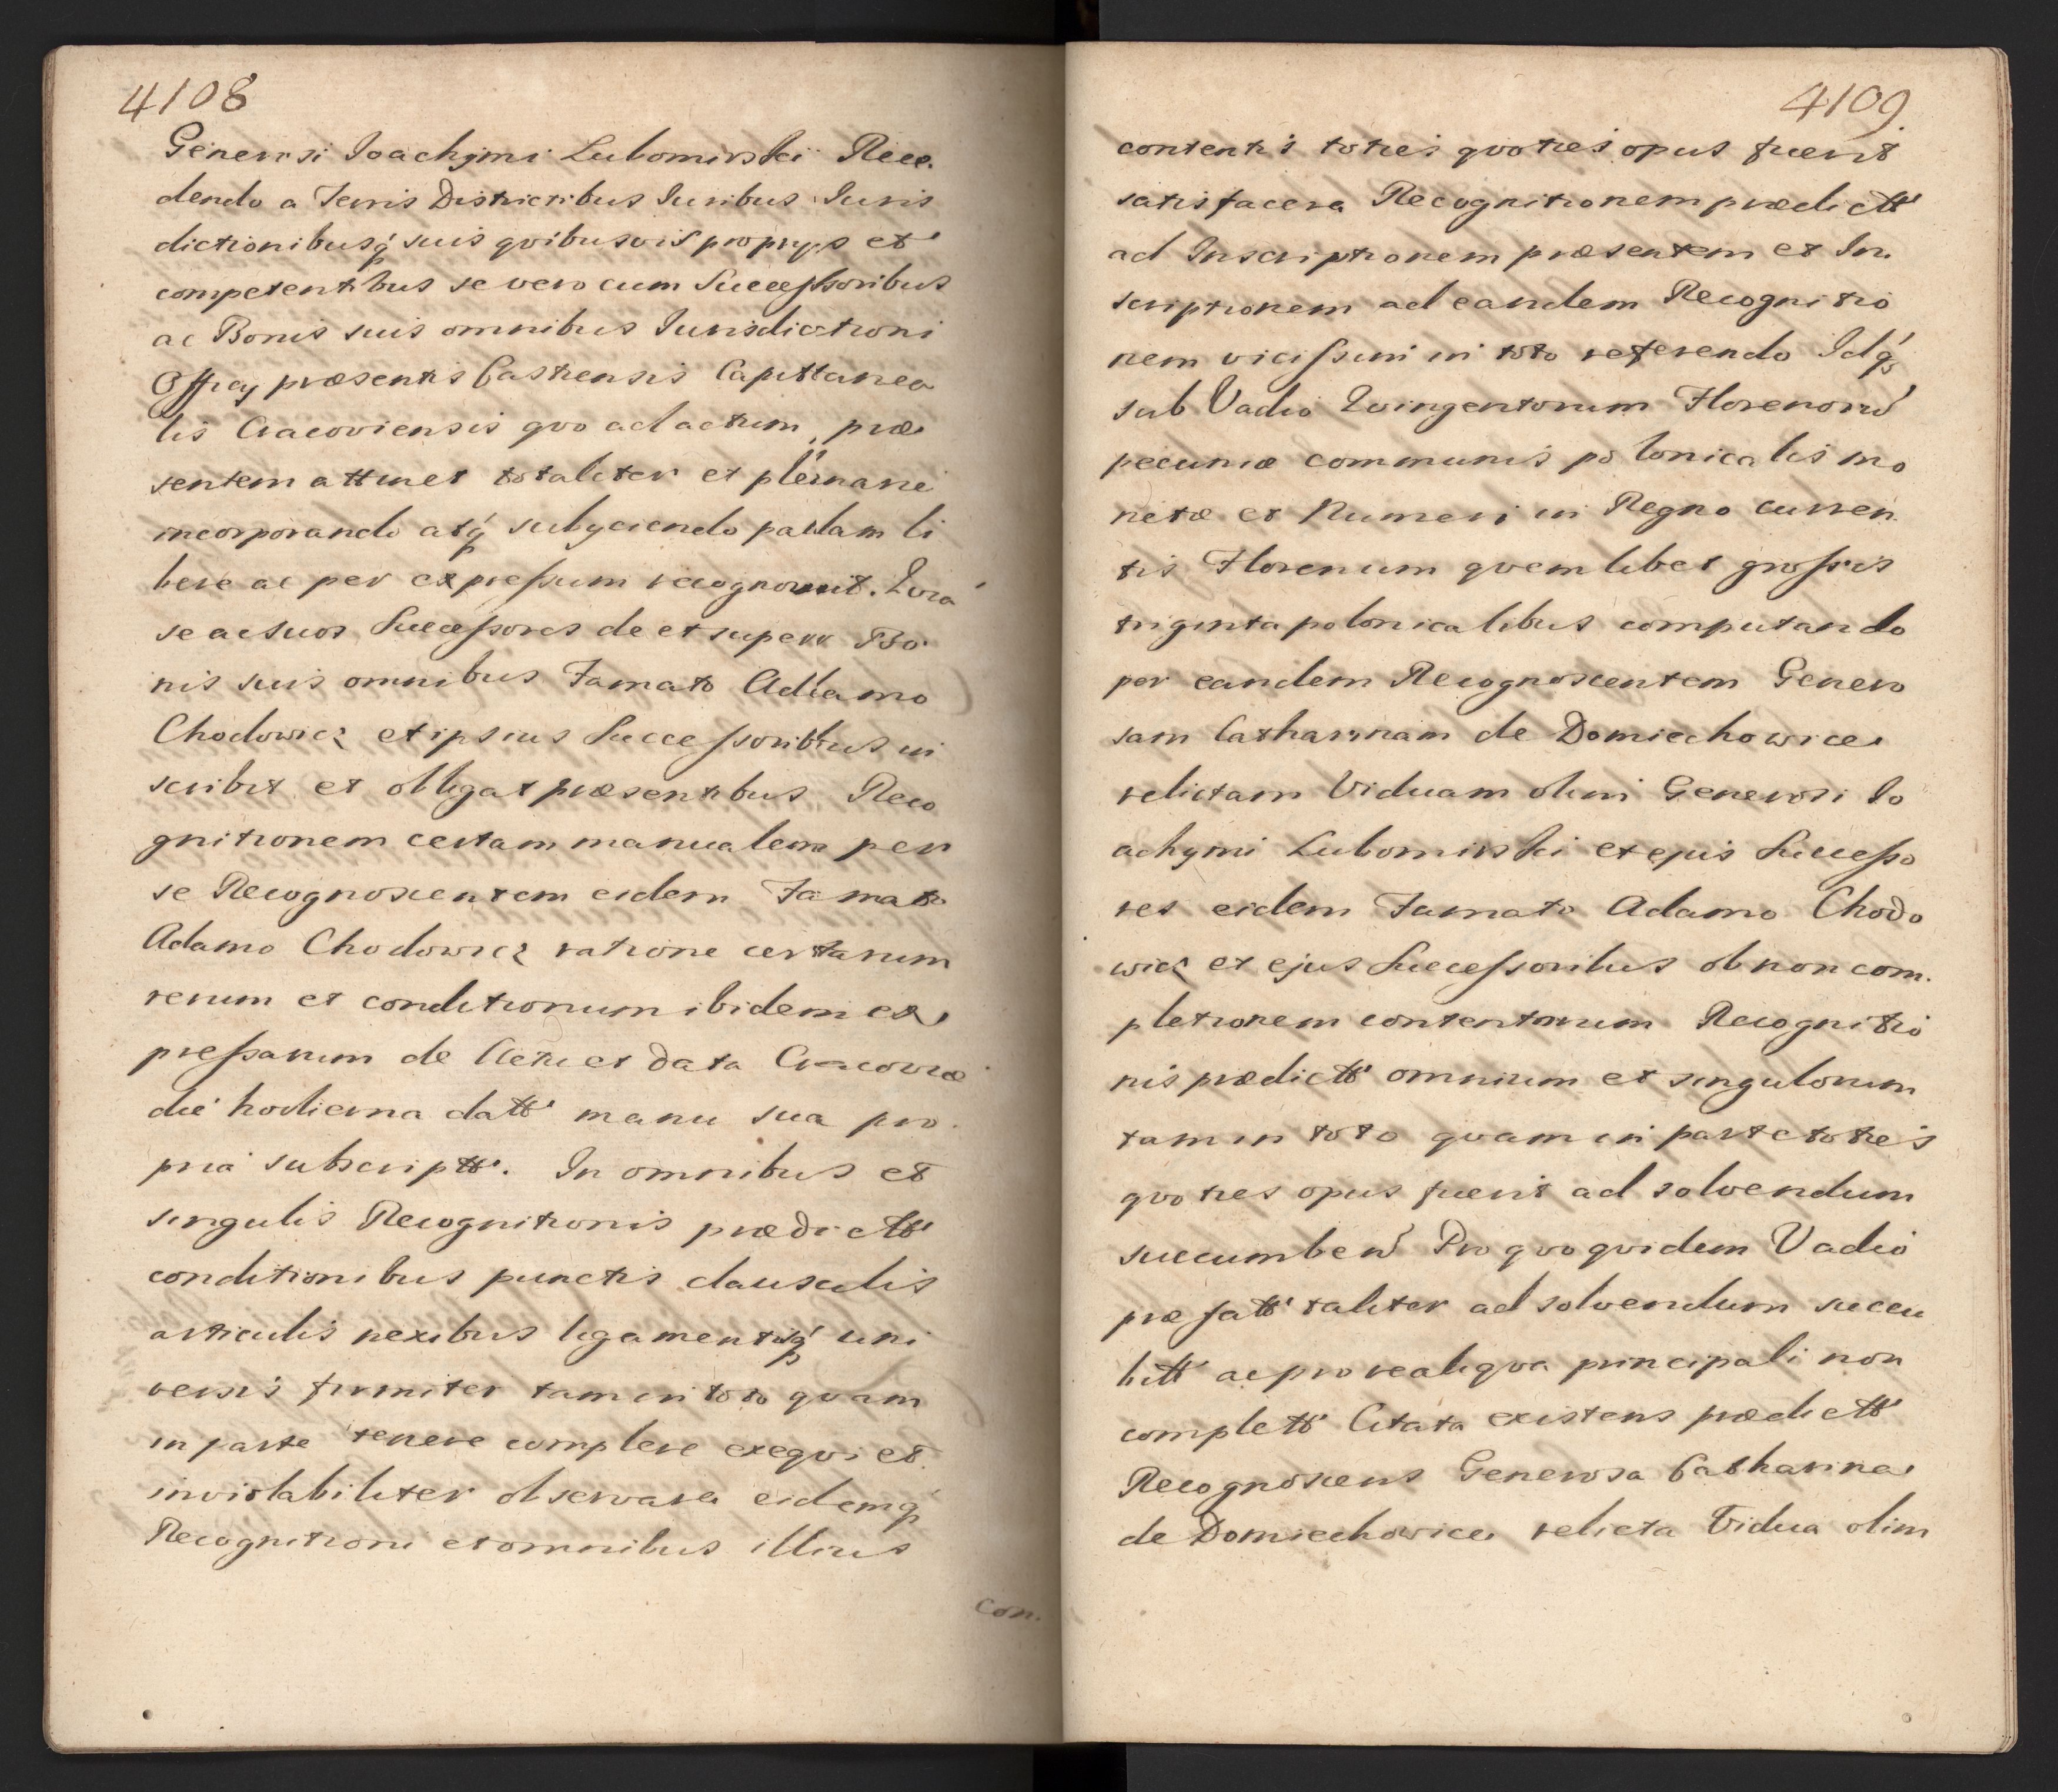 4108
Generosi Joachymi Lubomirski Rece.
dendo a Terris Districtibus Juribus Juris
dictionibusq́ suis qvibusvis proprys et
competentibus se vero cum Successoribus
ac Bonis suis omnibus Jurisdictioni
Officy præsentis Castrensis Capittanea
lis Cracoviensis qvo ad actum præ
sentem attinet totaliter et plenarie
incorporando atq́ subyciendo palam li
bere ac per expressum recognovit. Qvia
se ac suos Successores de et super Bo
nis suis omnibus Famato Adamo
Chodowicz et ipsius Successoribus in
scribit et obligat præsentibus Reco
gnitionem certam manualem per
se Recognoscentem eidem Famato
Adamo Chodowicz ratione certarum
rerum et conditionum ibidem ex
pressarum de Actu et data Cracoviæ
die hodierna datt' manu sua pro
pria subscriptt'. In omnibus et
singulis Recognitionis prædictt'
conditionibus punctis clausulis
articulis nexibus ligamentisq́ uni
versis firmiter tam in toto qvam
in parte tenere complere exeqvi et
inviolabiliter observare eidemq́
Recognitioni et omnibus illius
con.
4109.
contentis toties qvoties opus fuerit
satisfacere Recognitionem prædictt'
ad Inscriptionem præsentem et In
scriptionem ad eandem Recognitio
nem vicissim in toto referendo Idq́
sub Vadio Qvingentorum Florenorú
pecuniæ communis polonicalis mo
netæ et Numeri in Regno curren
tis Florenum qvemlibet grossis
triginta polonicalibus computando
per eandem Recognoscentem Genero
sam Catharinam de Domiechowice
relictam Viduam olim Generosi Jo
achymi Lubomirski et ejus Successo
res eidem Famato Adamo Chodo
wicz et ejus Successoribus ob non com.
pletionem contentorum Recognitio
nis prædictt' omnium et singulorum
tam in toto qvam in parte toties
qvoties opus fuerit ad solvendum
succumben' Pro qvo qvidem Vadio
præfatt' taliter ad solvendum succu
bitt' ac pro realiqva principali non
complett' Citata existens prædictt'
Recognoscens Generosa Catharina
de Domiechowice relicta Vidua olim